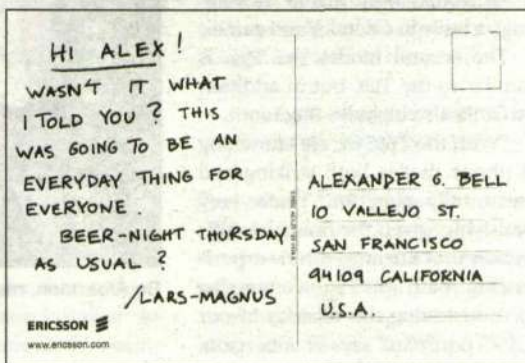 HI ALEX!
WASN'T IT WHAT
I TOLD YOU? THIS
WAS GOING TO BE AN
EVERYDAY THING FOR
EVERYONE
BEER-NIGHT THURSDAY
AS USUAL?
/LARS-MAGNUS
ERICSSON
www.ericsson.com
ALEXANDER G. BELL
10 VALLEJO ST.
SAN FRANCISCO
94109 CALIFORNIA
U.S.A.